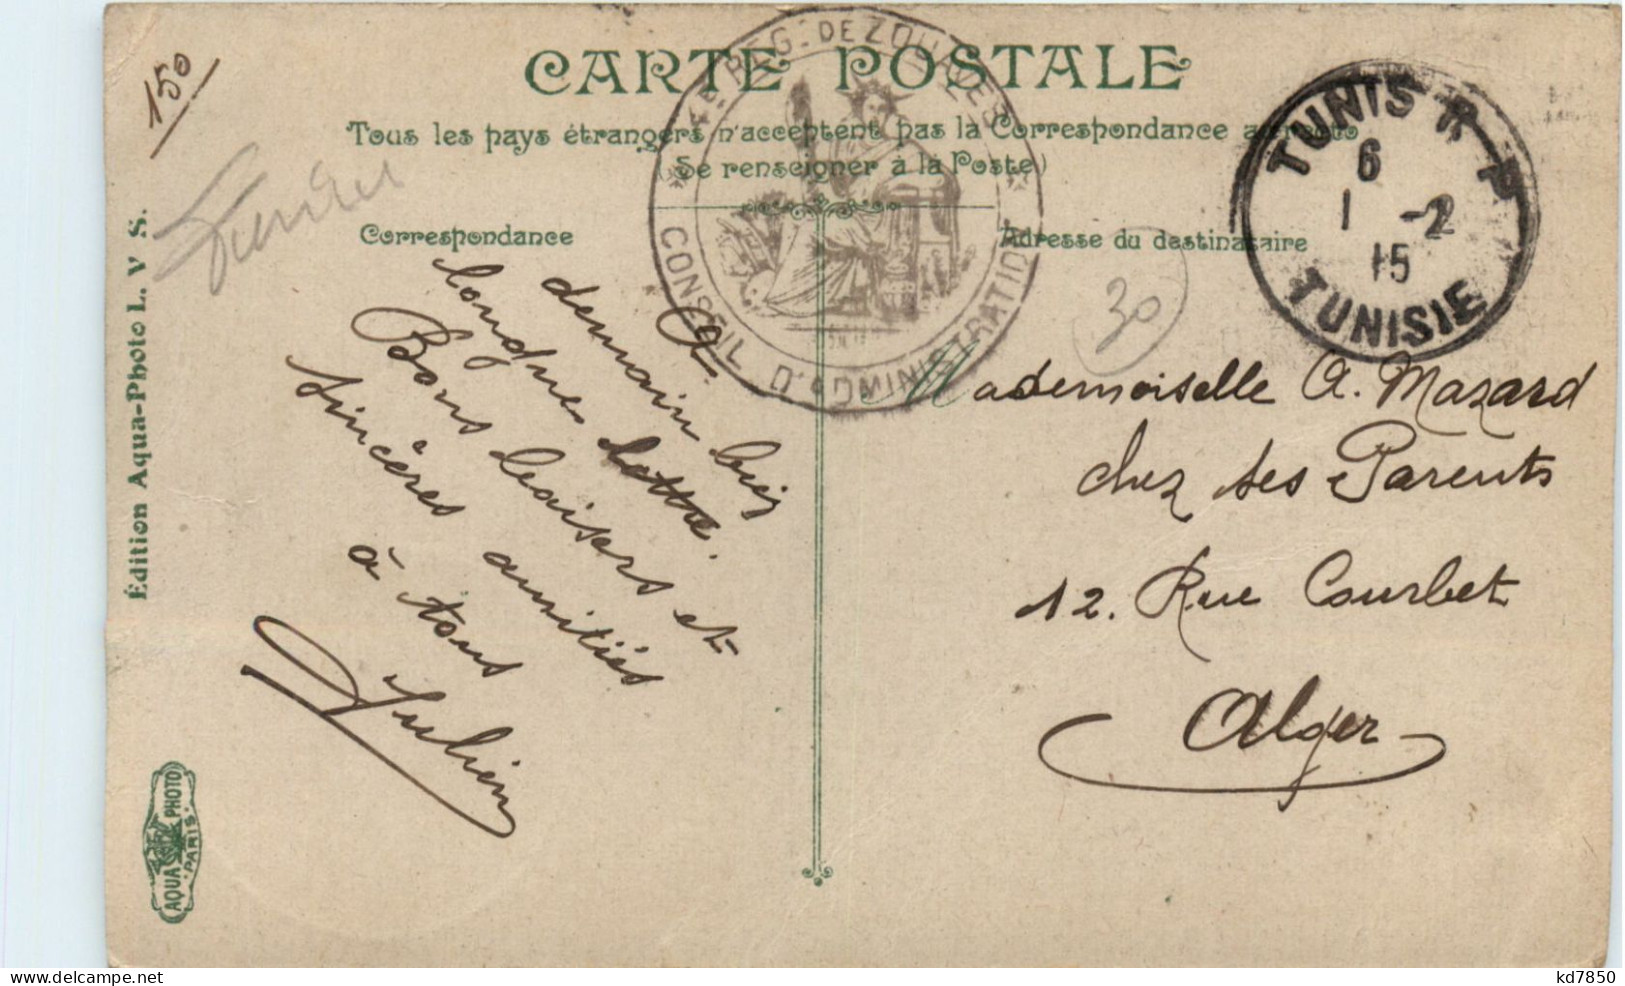 150
CARTE POSTALE
Tous les pays étrangers n'acceptent pas la Correspondance au recto
(Se renseigner à la Poste)
Correspondance
Adresse du destinataire
4E REG. DE ZOUAVES
CONSEIL D'ADMINISTRATION
TUNIS R P
6
1 -2
15
TUNISIE
30
A
demain bien
longue lettre.
Bons baisers et
sincères amitiés
à tous
Julien
Mademoiselle A. Mazard
chez ses Parents
12. Rue Courbet
Alger
Édition Aqua-Photo L. V S.
AQUA PHOTO
PARIS
delcampe.net
kd7850